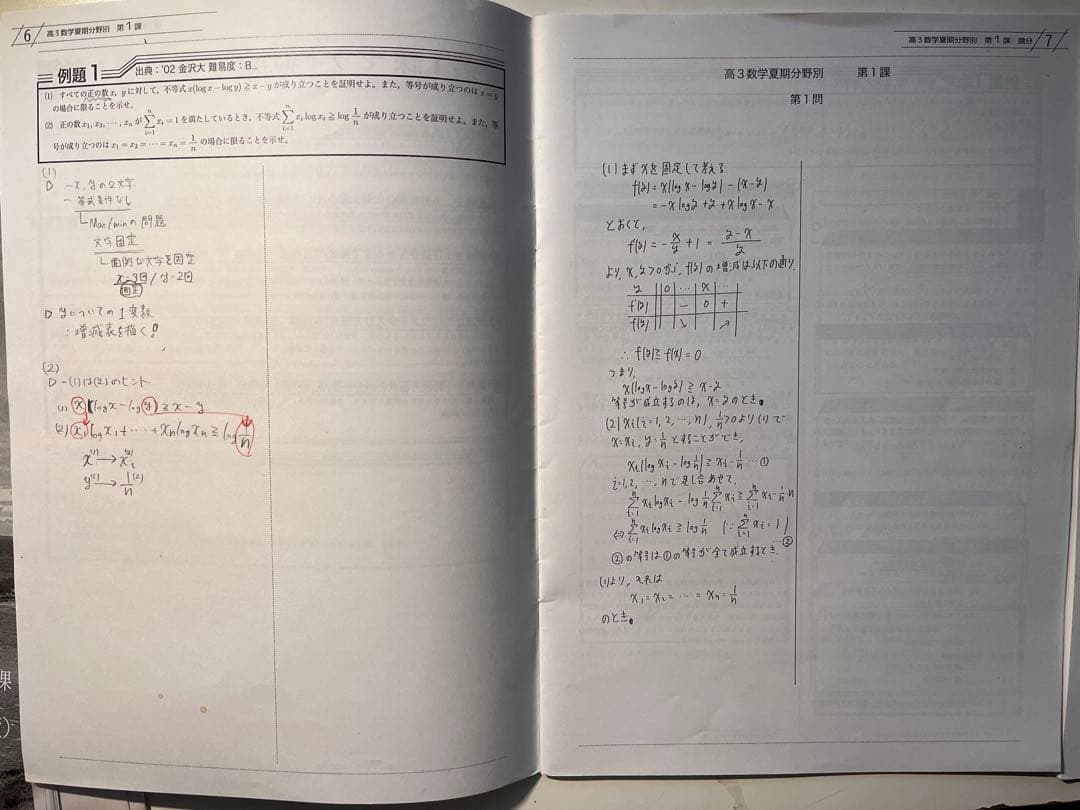 6
高3数学夏期分野別 第1課
例題1
出典：'02 金沢大 難易度：B
(1) すべての正の数x, yに対して, 不等式 x(log x − log y) ≧ x − y が成り立つことを証明せよ。また, 等号が成り立つのは x = y
の場合に限ることを示せ。
(2) 正の数 x₁, x₂, ⋯, xₙ が ∑ᵢ₌₁ⁿ xᵢ = 1 を満たしているとき, 不等式 ∑ᵢ₌₁ⁿ xᵢ log xᵢ ≧ log 1/n が成り立つことを証明せよ。また, 等
号が成り立つのは x₁ = x₂ = ⋯ = xₙ = 1/n の場合に限ることを示せ。
(1)
D − x, yの2文字
− 等式条件なし
Max/minの問題
文字固定
面倒な文字を固定
x-3回/y-2回
固定
D yについての1変数
：増減表を描く!
(2)
D −(1)は(2)のヒント
(1) x(log x − log y) ≧ x − y
(2) x₁ log x₁ + ⋯ + xₙ log xₙ ≧ log 1/n
x⁽¹⁾ → xᵢ⁽²⁾
y⁽¹⁾ → 1/n⁽²⁾
高3数学夏期分野別 第1課 微分
7
高3数学夏期分野別 第1課
第1問
(1) まずxを固定して考える
f(y) = x(log x − log y) − (x − y)
= −x log y + y + x log x − x
とおくと,
f'(y) = −x/y + 1 = (y − x)/y
より, x, y > 0から, f(y)の増減は以下の通り.
y 0 ⋯ x ⋯
f'(y) − 0 +
f(y) ↘ ↗
∴ f(y) ≧ f(x) = 0
つまり,
x(log x − log y) ≧ x − y
等号が成立するのは, x = yのとき。
(2) xᵢ(i = 1, 2, ⋯, n), 1/n > 0より(1)で
x = xᵢ, y = 1/n とすることができ,
xᵢ(log xᵢ − log 1/n) ≧ xᵢ − 1/n ⋯ ①
i = 1, 2, ⋯, nで足し合わせて,
∑ᵢ₌₁ⁿ xᵢ log xᵢ − log 1/n ∑ᵢ₌₁ⁿ xᵢ ≧ ∑ᵢ₌₁ⁿ xᵢ − 1/n · n
⇔ ∑ᵢ₌₁ⁿ xᵢ log xᵢ ≧ log 1/n (∵ ∑ᵢ₌₁ⁿ xᵢ = 1)
⋯ ②
②の等号は①の等号が全て成立するとき.
(1)より, それは
x₁ = x₂ = ⋯ = xₙ = 1/n
のとき。
課